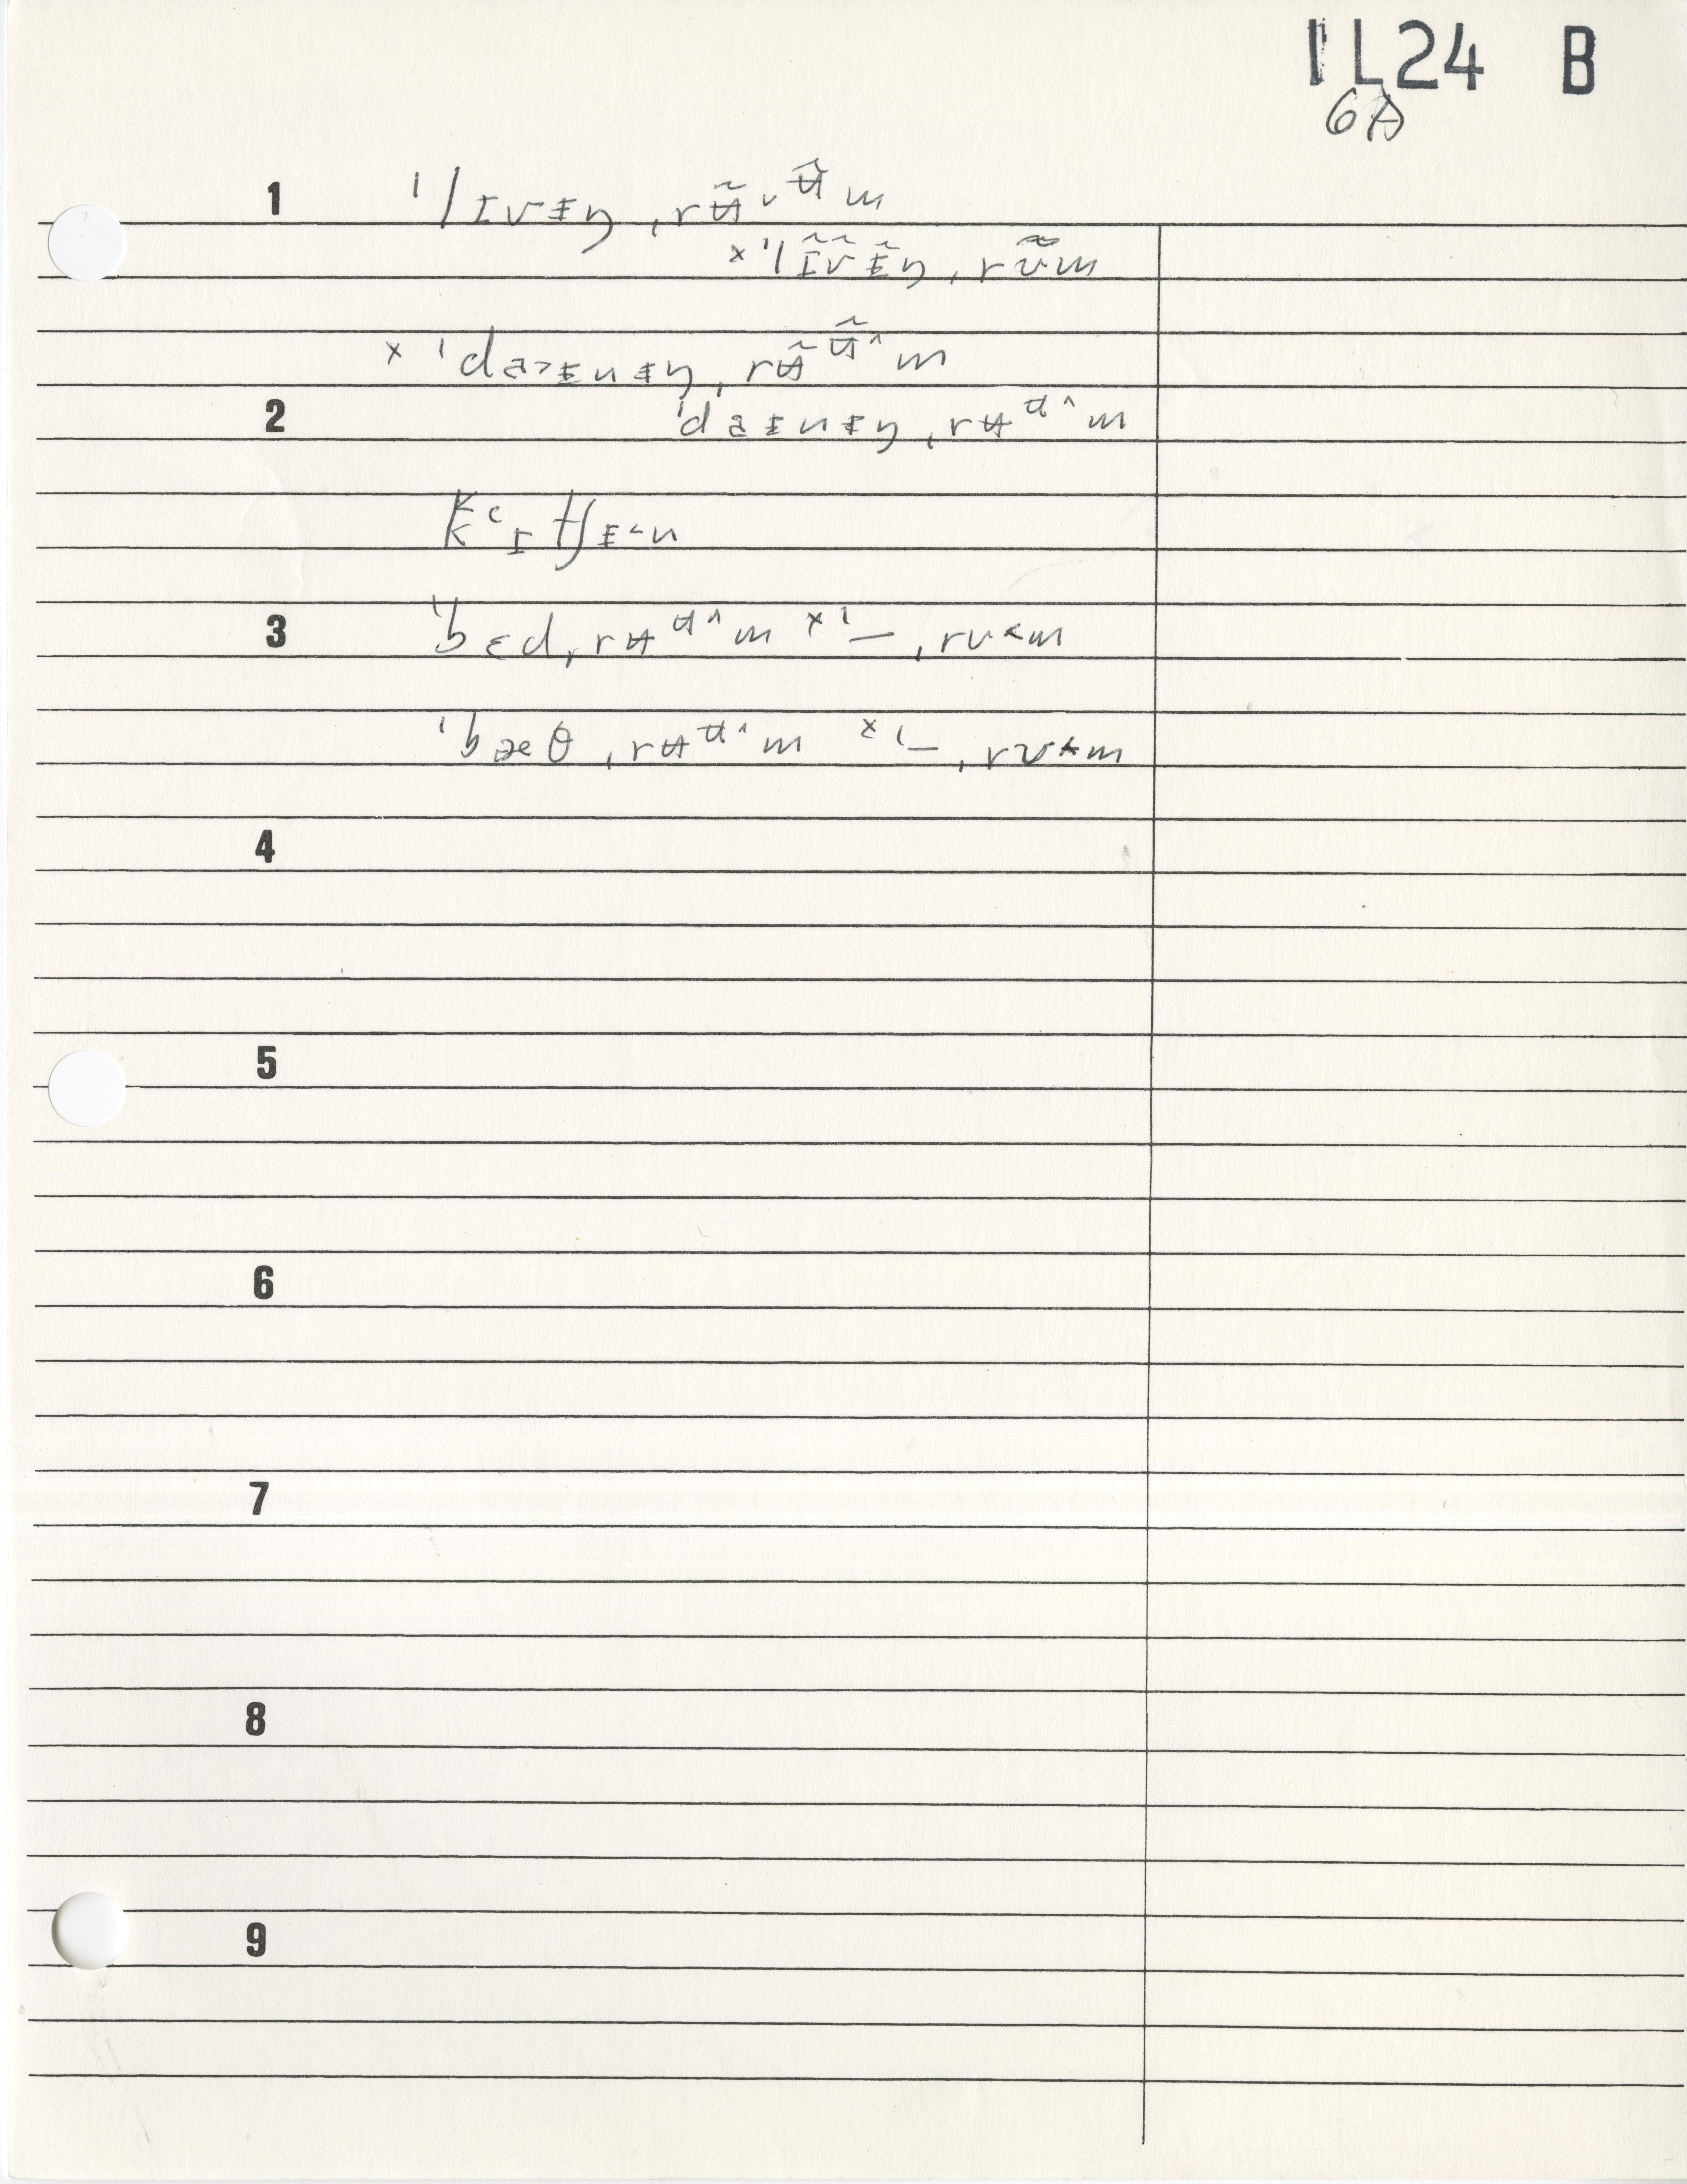 1L24 B
6A
1 ˈlɪvɨŋ ˌrʉ̃ˇᶶ̃m
×ˈlɪ̃ṽɨ̃ŋ ˌrʊ̃m
× ˈda˃ɨnɨŋ ˌrʉ̃ᶶ̃^m
2 ˈdaɨnɨŋ ˌrʉᶶ^m
kʿɪtʃɨ˂n
3 ˈbɛd ˌrʉᶶ^m ×ˈ— ˌrʊ˂m
ˈbæθ ˌrʉᶶ^m ×ˈ— ˌrʊ˂m
4
5
6
7
8
9